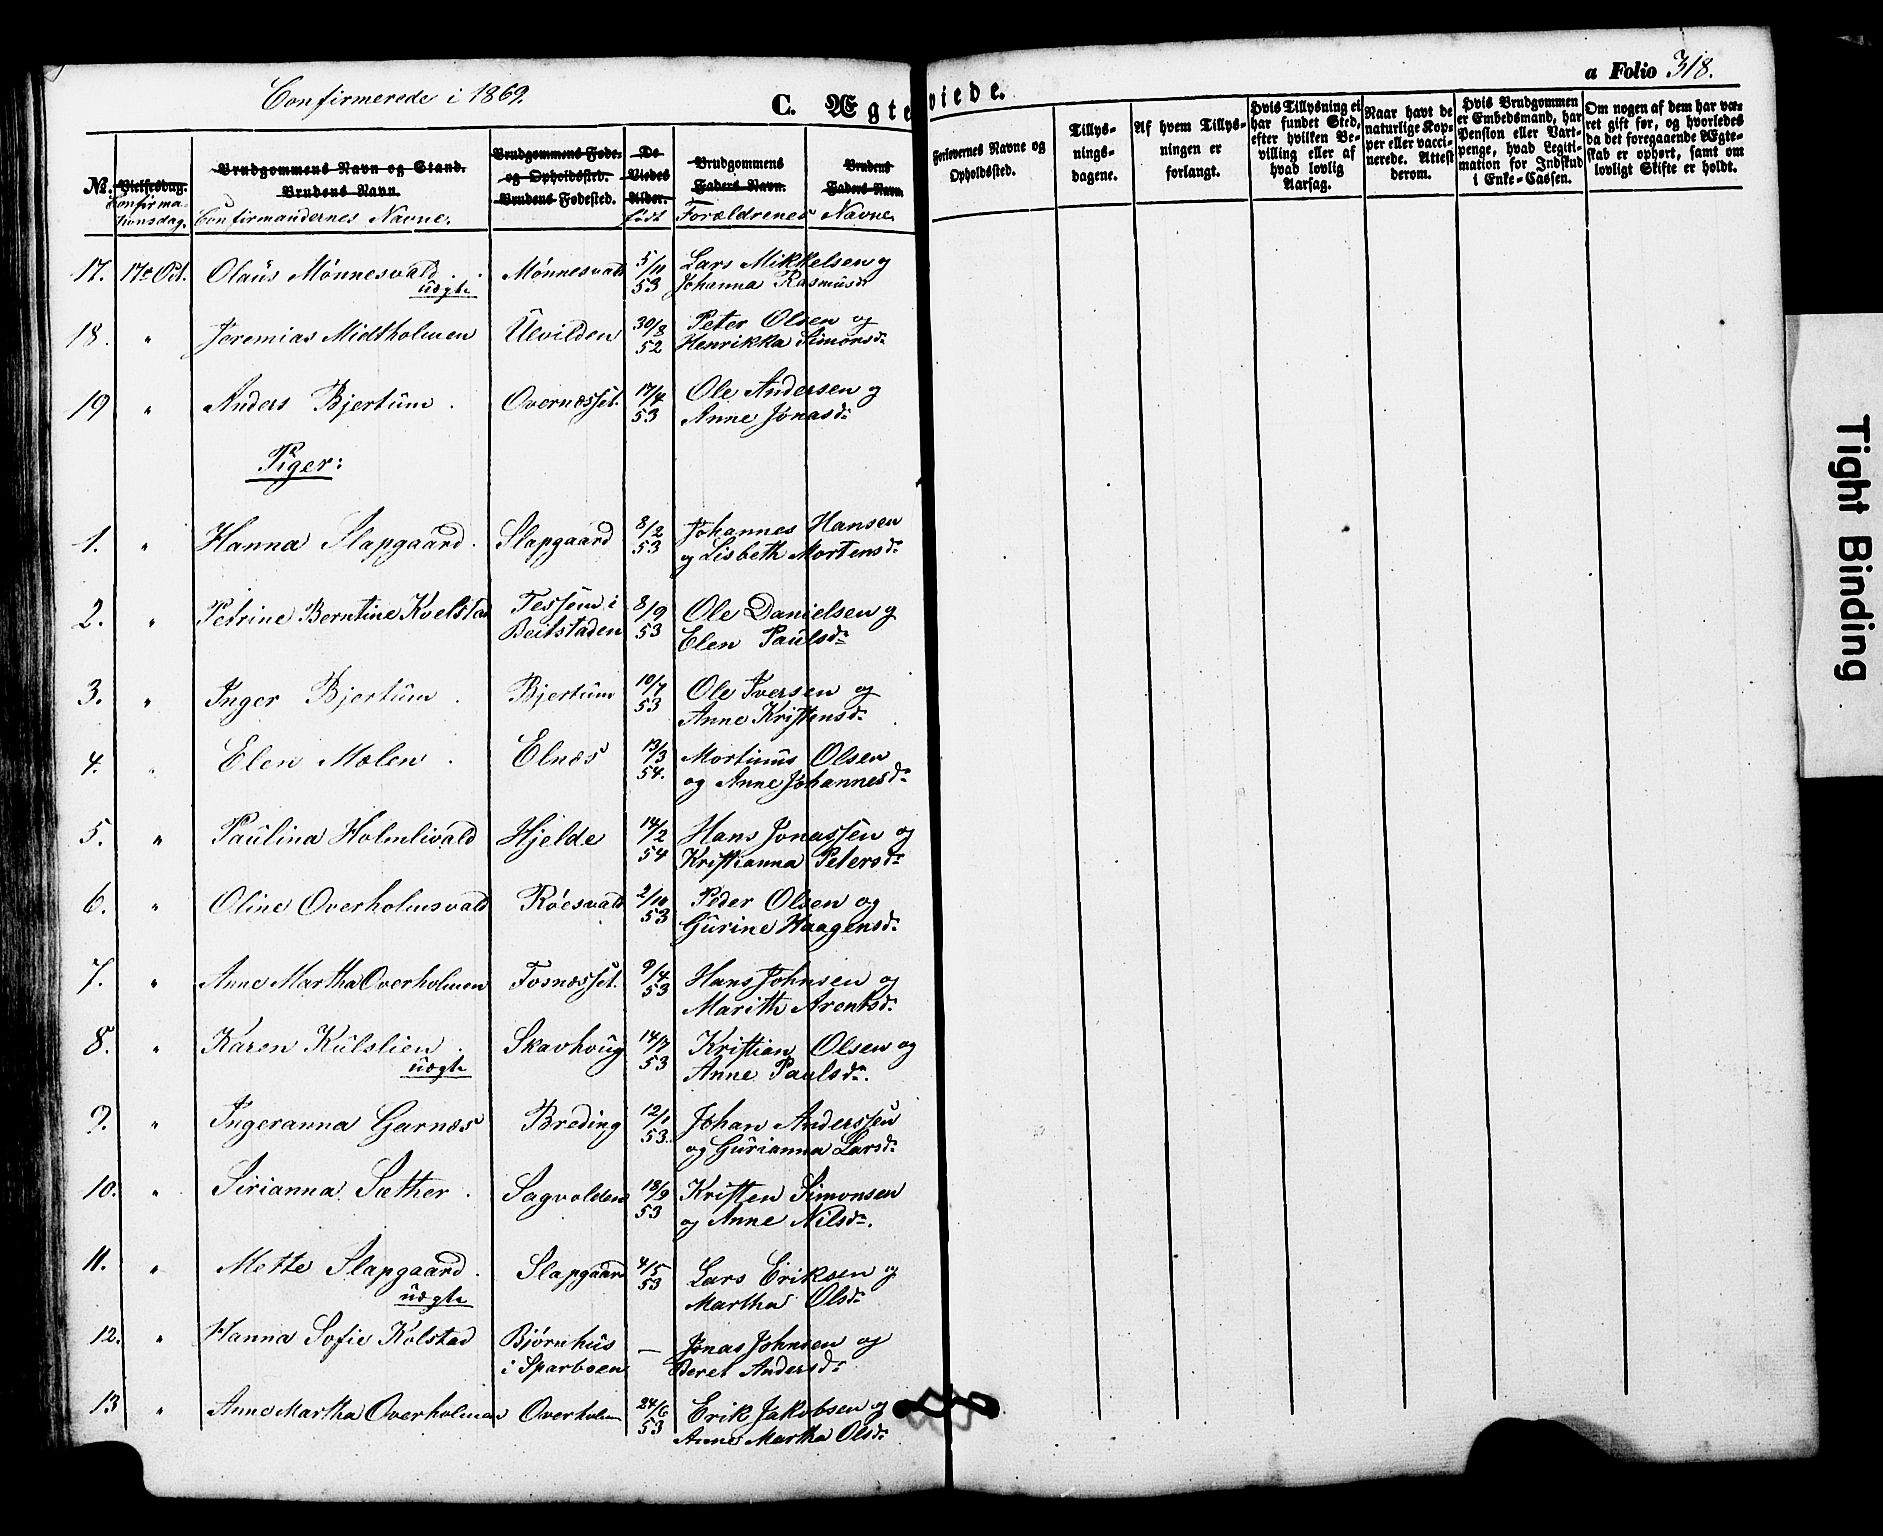 Confirmerede i 1869.
C. Ægteviede.
a Folio 318.
No.
Vielsesdag.
Confirmationsdag.
Brudgommens Navn og Stand.
Brudens Navn.
Confirmandernes Navne.
Brudgommens Føde-
og Opholdssted.
Brudens Fødested.
De
Viedes
Alder.
født
Brudgommens
Faders Navn.
Brudens
Faders Navn.
Forældrenes Navne
Forlovernes Navne og
Opholdssted.
Tillys-
nings-
dagene.
Af hvem Tillys-
ningen er
forlangt.
Hvis Tillysning ei
har fundet Sted,
efter hvilken Be-
villing eller af
hvad lovlig
Aarsag.
Naar havt de
naturlige Kop-
per eller vacci-
nerede. Attest
derom.
Hvis Brudgommen
er Embedsmand, har
Pension eller Vart-
penge, hvad Legiti-
mation for Indskud
i Enke-Cassen.
Om nogen af dem har væ-
ret gift før, og hvorledes
da det foregaaende Ægte-
skab er ophørt, samt om
lovligt Skifte er holdt.
17. 17e Oct. Olaus Mønnesvald. Mønnesvald 5/11 Lars Mikkelsen og
uægte 53 Johanna Rasmusdr
18. " Jeremias Midtholmen Ulvilden 30/8 Peter Olsen og
52 Henrikka Simonsdr
19 " Anders Bjertum. Overnæsset. 17/4 Ole Andersen og
53 Anne Jonasdr
Piger:
1. " Hanna Slapgaard. Slapgaard 8/2 Johannes Hansen
53 og Lisbeth Mortensdr
2. " Petrine Berntine Kvelstad Tessem i 8/9 Ole Danielsen og
Beitstaden 53 Elen Paulsdr
3. " Inger Bjertum. Bjertum 10/7 Ole Iversen og
53 Anne Kristensdr
4. " Elen Molen. Elnæs 13/3 Mortinus Olsen
54. og Anne Johannesdr
5. " Paulina Holmlivald Hjelde 14/2 Hans Jonassen og
54 Kristianna Petersdr
6. " Oline Overholmsvald Røesvald 2/10 Peder Olsen og
53 Gurine Haagensdr
7. " Anne Martha Overholmen Fosnæsset. 9/4 Hans Johnsen og
53 Marith Arentsdr
8. " Karen Kulslien. Skavhoug 14/7 Kristian Olsen og
uægte 53 Anne Paulsdr.
9. " Ingeranna Garnæs Breding 12/1 Johan Anderssen
53. og Gurianna Larsdr
10. " Sirianna Sæther. Sagvolden 18/9 Kristen Simonsen
53 og Anne Nilsdr.
11. " Mette Slapgaard. Slapgaard 4/5 Lars Eriksen og
uægte 53 Martha Olsdr
12. " Hanna Sofie Kolstad Bjørnhus — Jonas Johnsen og
i Sparboen Beret Andersdr
13 " Anne Martha Overholmen Overholm 24/6 Erik Jakobsen og
53 Anne Martha Olsdr
Tight Binding